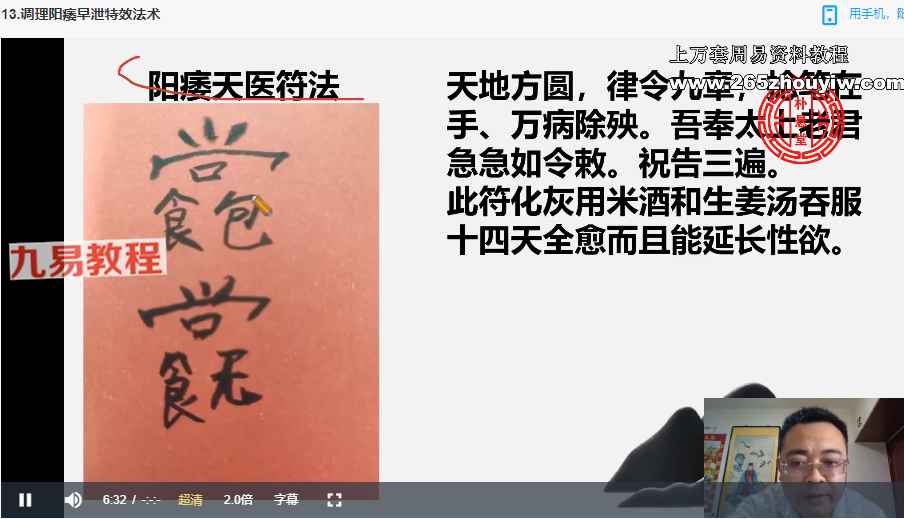 13.调理阳痿早泄特效法术
用手机，
上万套周易资料教程
www.265zhouyiw.com
阳痿天医符法
天地方圆，律令九章，于笔在
手、万病除殃。吾奉太上老君
急急如令敕。祝告三遍。
此符化灰用米酒和生姜汤吞服
十四天全愈而且能延长性欲。
朴
堂
九易教程
食包
食无
6:32 / -:-:-
超清
2.0倍
字幕